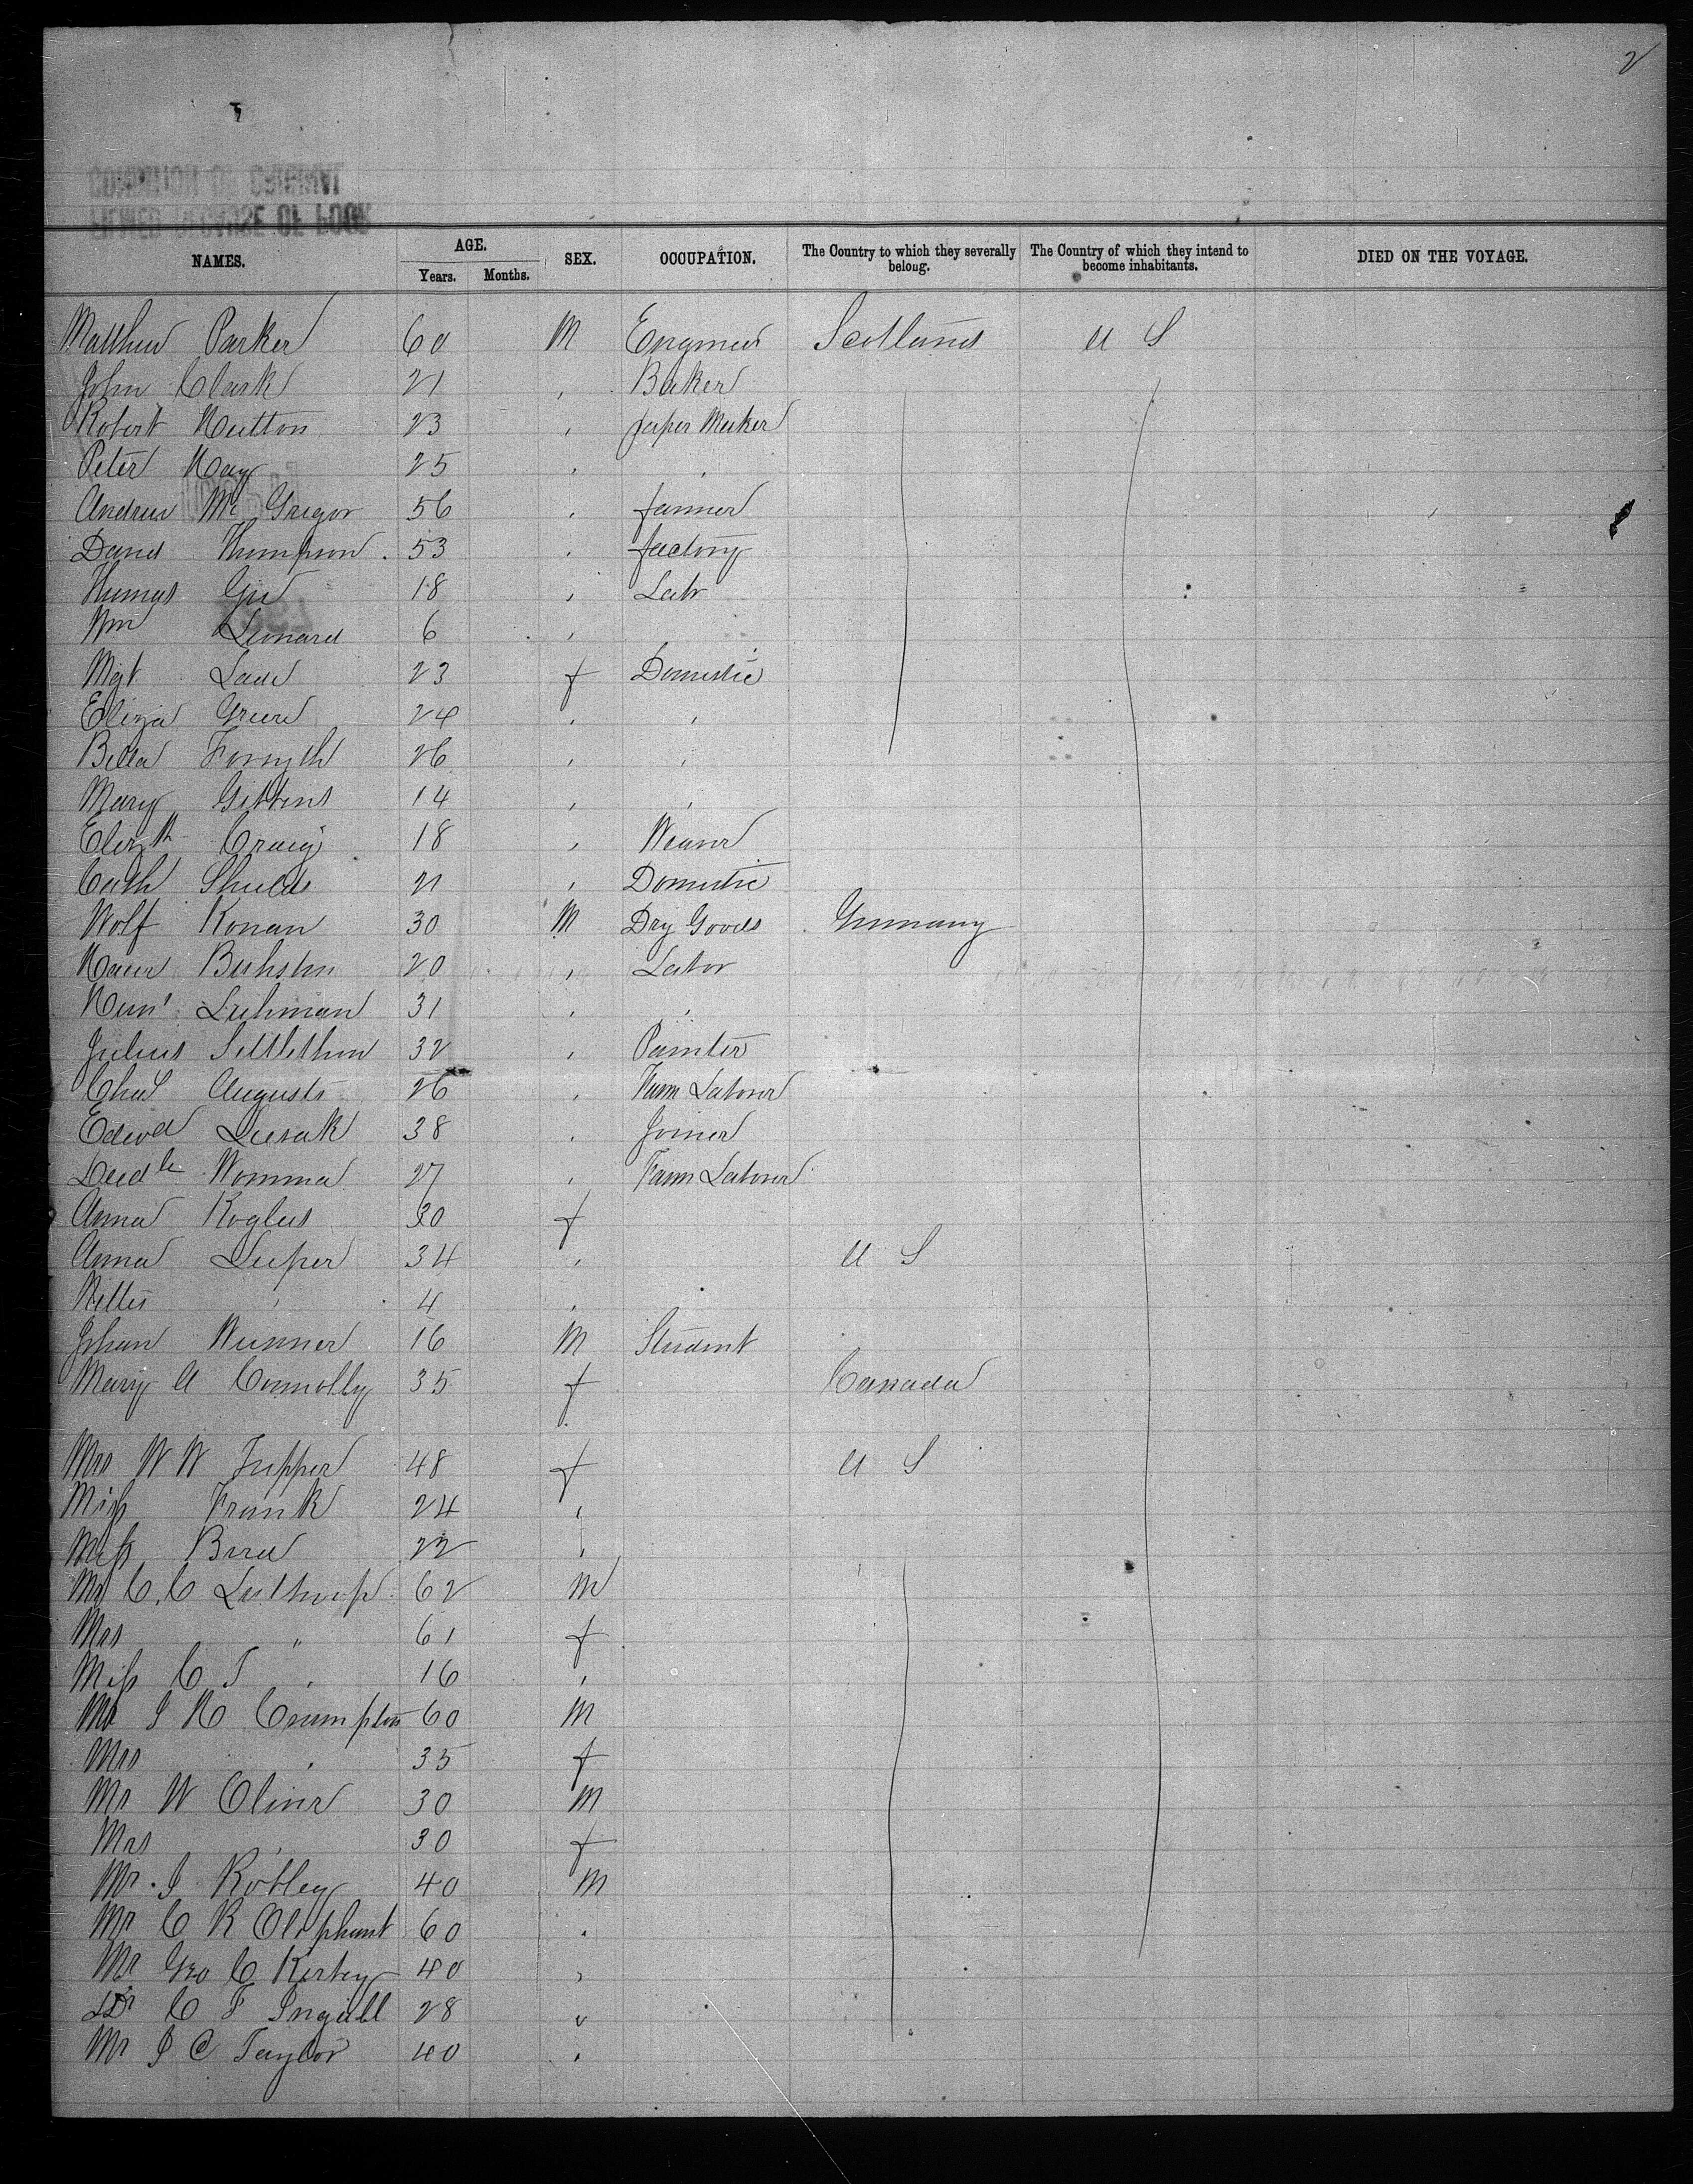 2
NAMES. AGE. SEX. OCCUPATION. The Country to which they severally belong. The Country of which they intend to become inhabitants. DIED ON THE VOYAGE.
Years. Months.
Matthew Parker 60 M Engineer Scotland U S
John Clark 21 , Baker
Robert Hutton 23 , paper Maker
Peter Hay 25 , ,
Andrew Mc Gregor 56 , farmer
David Thompson 53 , factory
Thomas 18 , Labr
Wm Leonard 6 ,
Mgt 23 f Domestic
Eliza Green 24 , ,
Bella Forsyth 26 , ,
Mary Gibbins 14 , ,
Elizth Craig 18 , Weaver
Cath Shields 21 , Domestic
Wolf Konan 30 M Dry Goods Germany
20 , Labor
31 , ,
Julius 32 , Painter
Chas August 26 , Farm Laborer
Edwd 38 , Joiner
Womma 27 , Farm Laborer
Anna 30 f
Anna 34 , U S
4 ,
Johan 16 M Student
Mary A Connolly 35 f Canada
Mrs W W Tupper 48 f U S
Miss Frank 24 ,
Miss 22 ,
Mr C. C Lathrop 62 M
Mrs " 61 f
Miss C T " 16 ,
Mr J H Crumpton 60 M
Mrs , 35 f
Mr W Oliver 30 M
Mrs , 30 f
Mr. J Robley 40 M
Mr C R Oliphant 60 ,
Mr Geo C Kirby 40 ,
Dr C F Ingall 28 "
Mr J C Taylor 40 ,